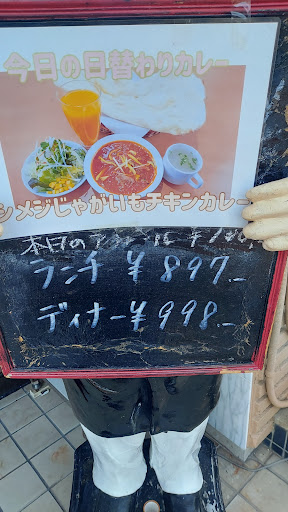 今日の日替わりカレー
シメジじゃがいもチキンカレー
本日の
ランチ ¥897-
ディナー ¥998-